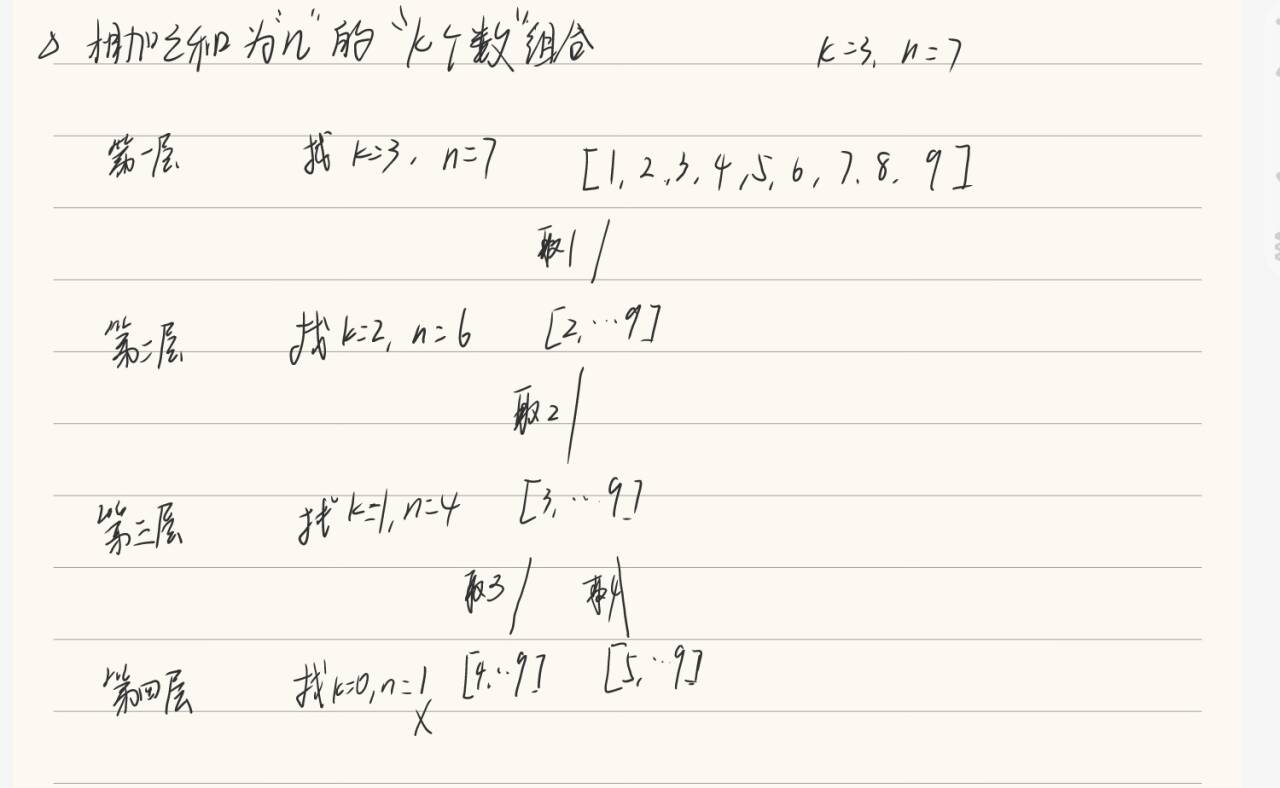 △ 相加之和为"n"的"k个数"组合 k=3, n=7
第一层 找 k=3, n=7 [1, 2, 3, 4, 5, 6, 7, 8, 9]
取1
第二层 找 k=2, n=6 [2, …9]
取2
第三层 找 k=1, n=4 [3, …9]
取3 取4
第四层 找 k=0, n=1 [4, …9] [5, …9]
X